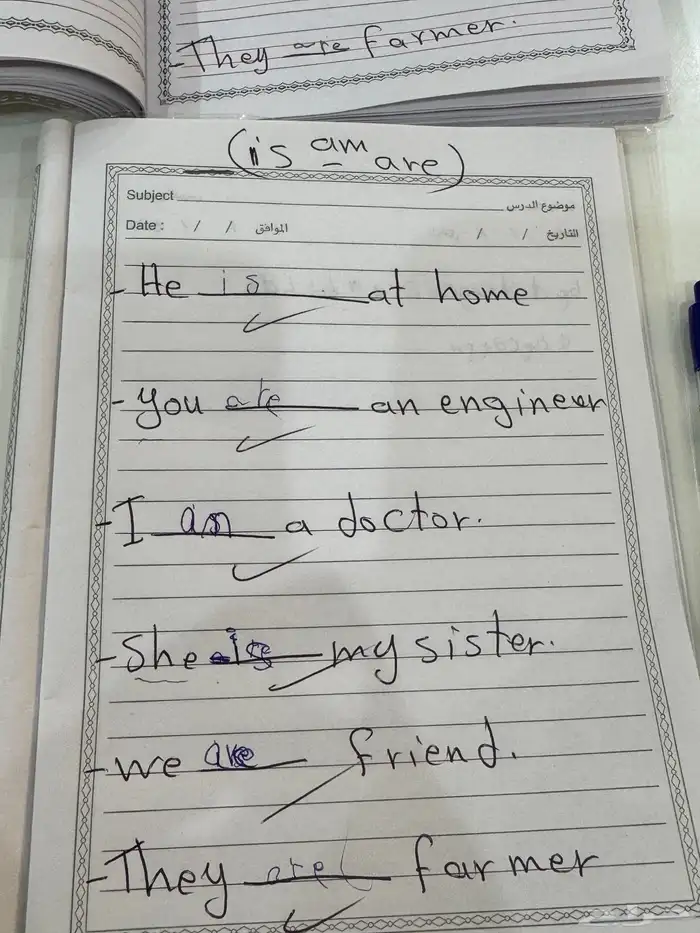 - They are farmer.
(is am are)
Subject موضوع الدرس
Date : / / الموافق / / التاريخ
- He is at home
- you are an engineer
- I am a doctor.
- She is my sister.
- we are friend.
- They are farmer